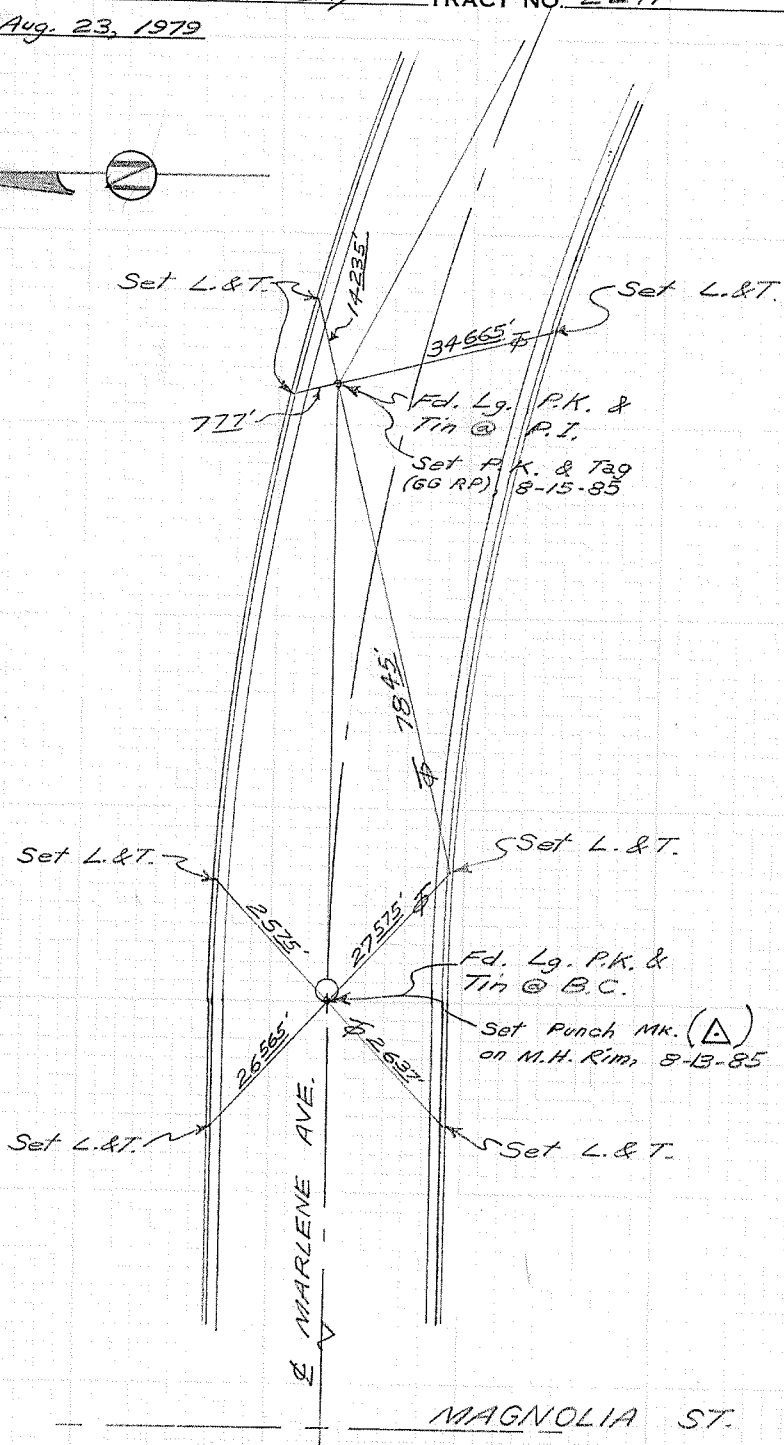 TRACT NO.
Aug. 23, 1979
N
Set L.&T.
14235'
Set L.&T.
34665'
777'
Fd. Lg. P.K. &
Tin @ P.I.
Set P.K. & Tag
(GG RP), 8-15-85
7845'
Set L.&T.
Set L.&T.
2575'
27575'
Fd. Lg. P.K. &
Tin @ B.C.
Set Punch Mk. (△)
on M.H. Rim, 8-13-85
26565'
2637'
Set L.&T.
Set L.&T.
℄ MARLENE AVE.
MAGNOLIA ST.